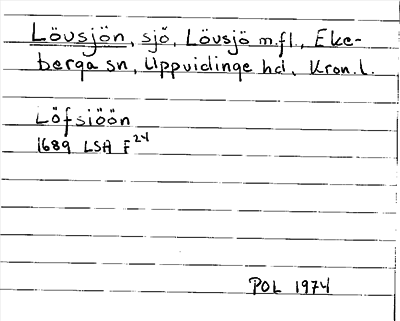 Lövsjön, sjö, Lövsjö m.fl., Eke-
berga sn, Uppvidinge hd, Kron.l.
Löfsiöön
1689 LSA F24
POL 1974